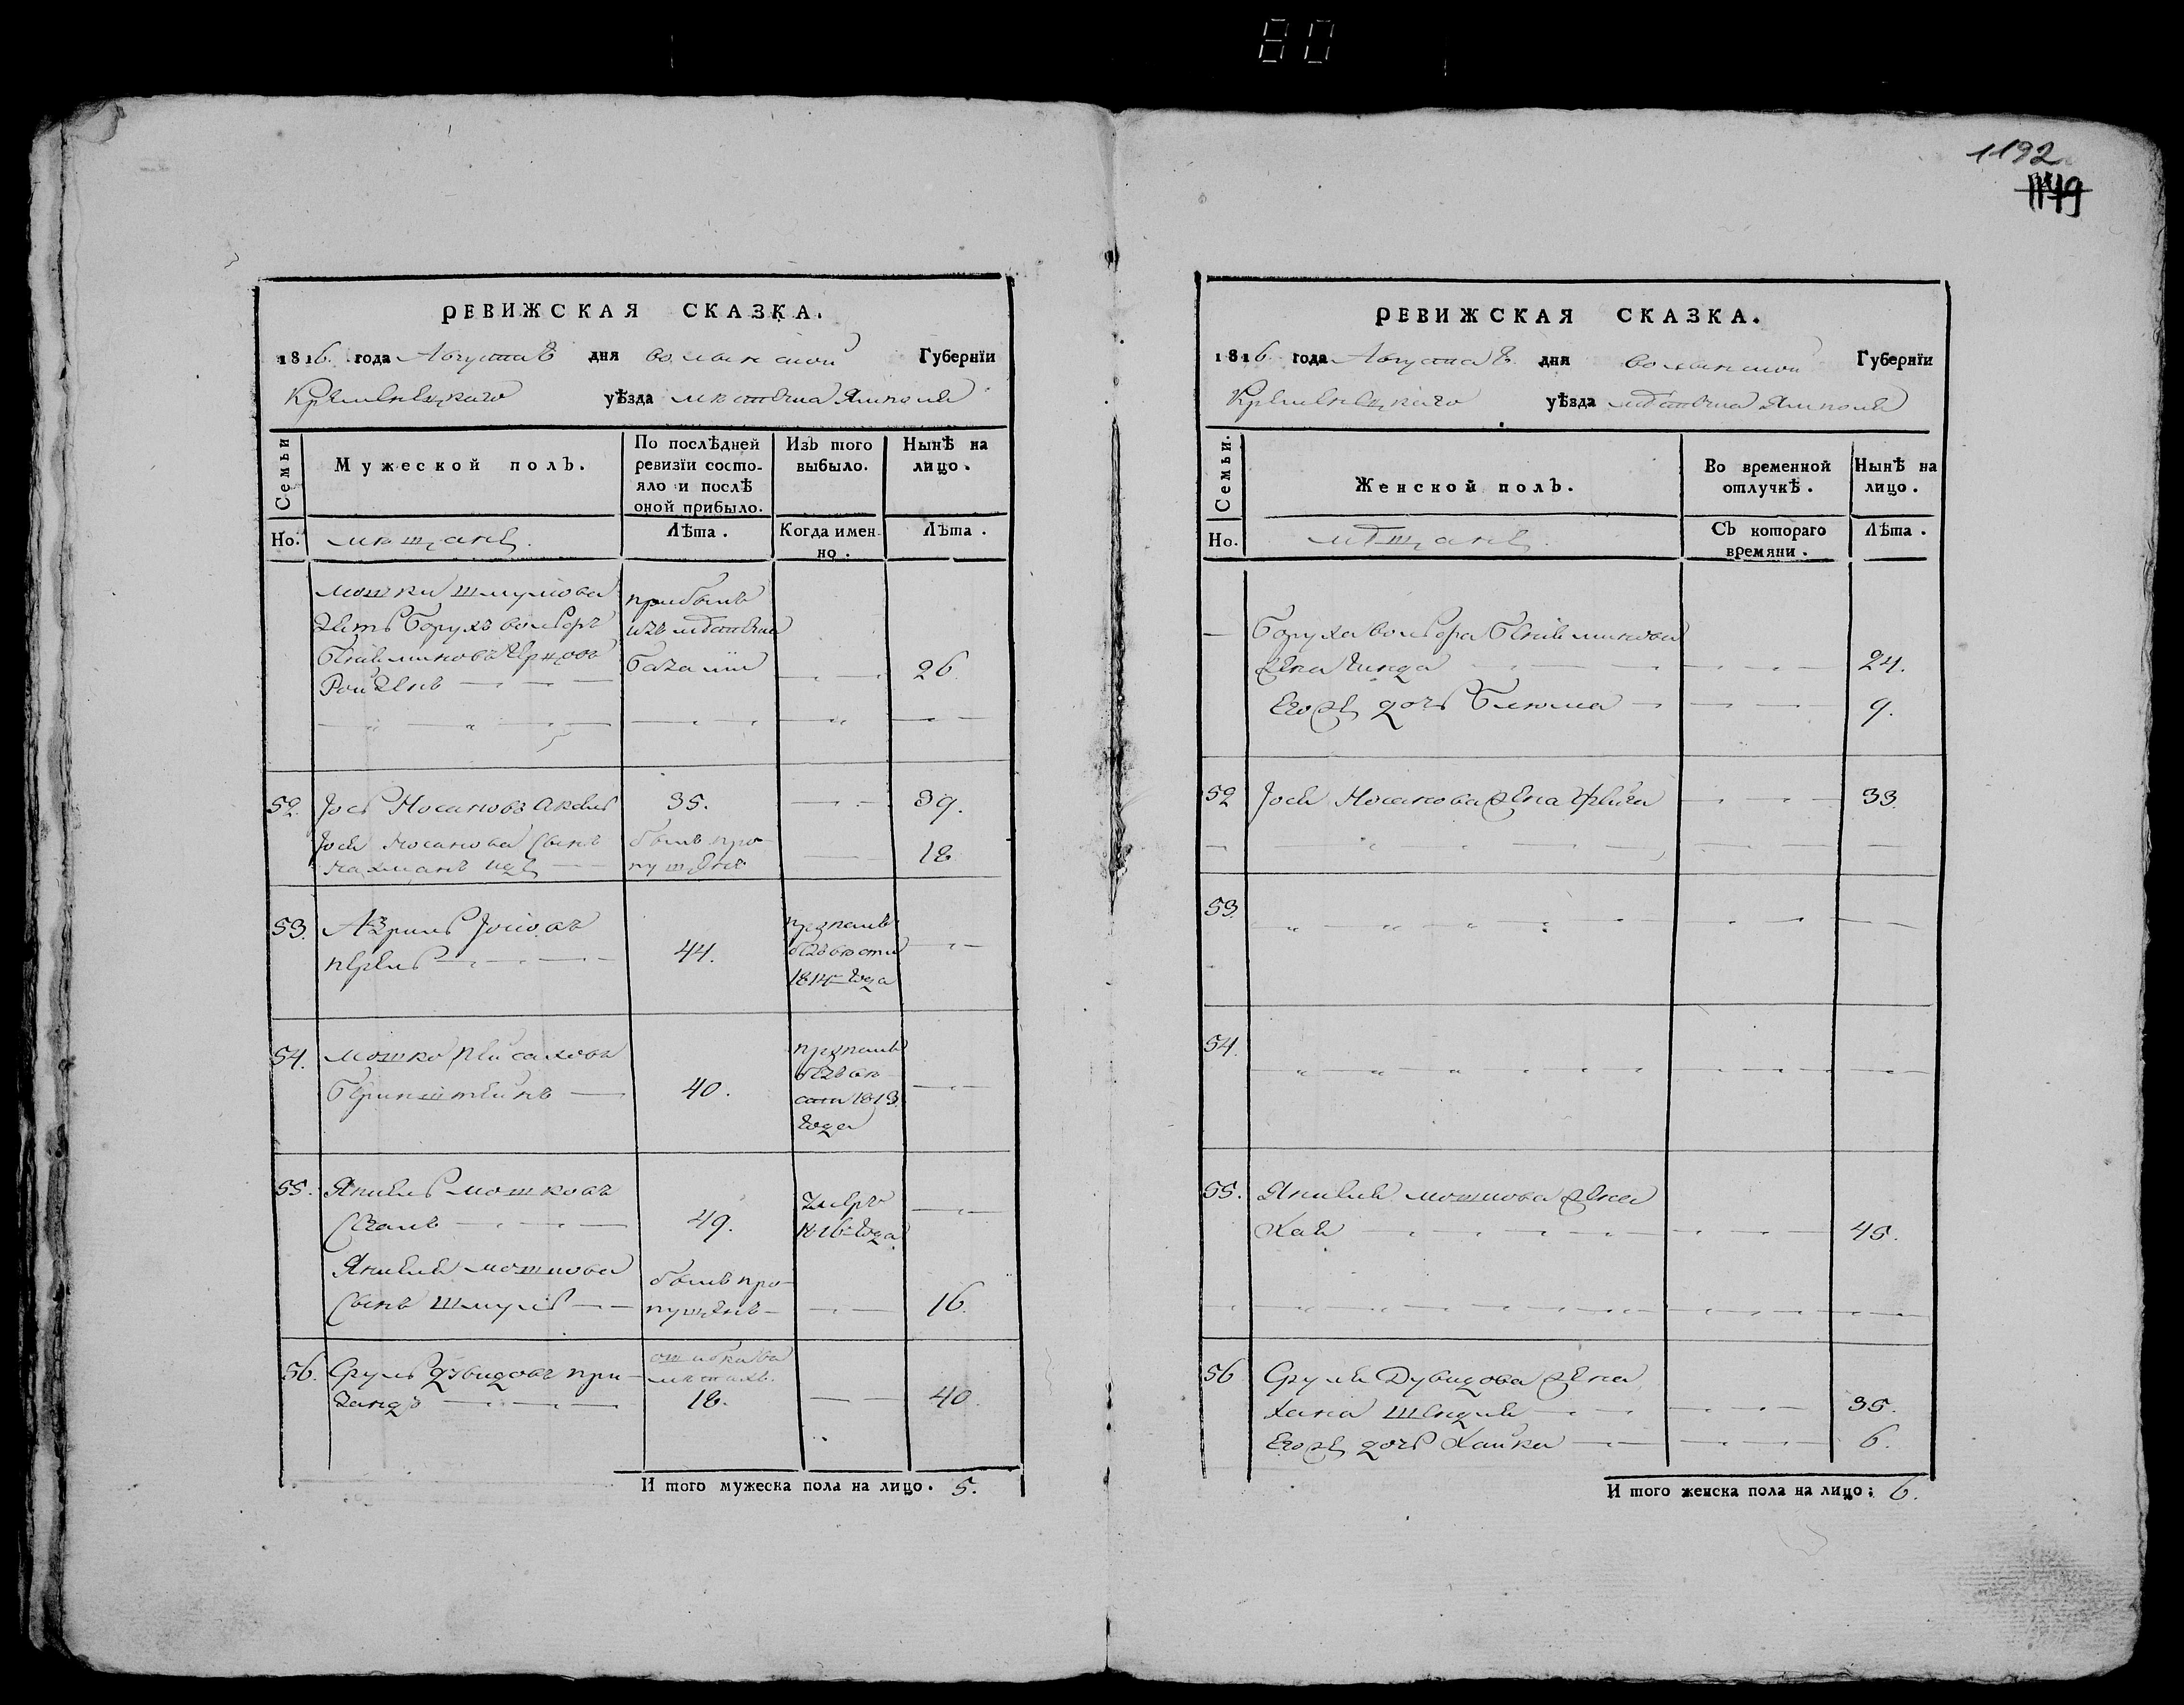 80
1192
1149
РЕВИЖСКАЯ СКАЗКА.
1816 года Августа 8 дня волынской Губернїи
Кременецкаго уѣзда мѣстечка Ямполя
Семьи
Мужеской полъ.
По послѣдней
ревизїи состо-
яло и послѣ
оной прибыло.
Изъ того
выбыло.
Нынѣ на
лицо.
Но.
мѣщане
Лѣта.
Когда имен-
но.
Лѣта.
мошки шмулова
Зять Борухъ вольфъ
Ройзенъ
прибылъ
изъ мѣстечка
26.
52. Jось Носановъ 35. 39.
Jося Носанова сынъ
Нахманъ
былъ про-
пущенъ
18
53. Азриль Jосіовъ
44.
пропалъ
безъвѣсти
1814 года
54. мошко Пейсаховъ
Бернштейнъ
40.
пропалъ
безъвѣ
сти 1813
года
55. Янкель мошковъ
Сегаль
49.
умеръ
1816 года
Янкеля мошкова
сынъ Шмуль
былъ про-
пущенъ
16.
56. Сруль Дувидовъ при-
ошибка въ
лѣтахъ.
18.
40.
И того мужеска пола на лицо. 5.
РЕВИЖСКАЯ СКАЗКА.
1816 года Августа 8 дня волынской Губернїи
Кременецкаго уѣзда мѣстечка Ямполя
Семьи.
Женской полъ.
Во временной
отлучкѣ.
Нынѣ на
лицо.
Но.
мѣщане
Съ котораго
времяни.
Лѣта.
Боруха вольфа
жена Гинда 24.
Его же дочь Блюма 9.
52 Jося Носанова жена Фейга 33.
53.
54.
55. Янкеля мошкова жена
Хая 45.
56 Сруля Дувидова жена
Хана Шендля 35.
Его же дочь Хайка 6.
И того женска пола на лицо: 6.